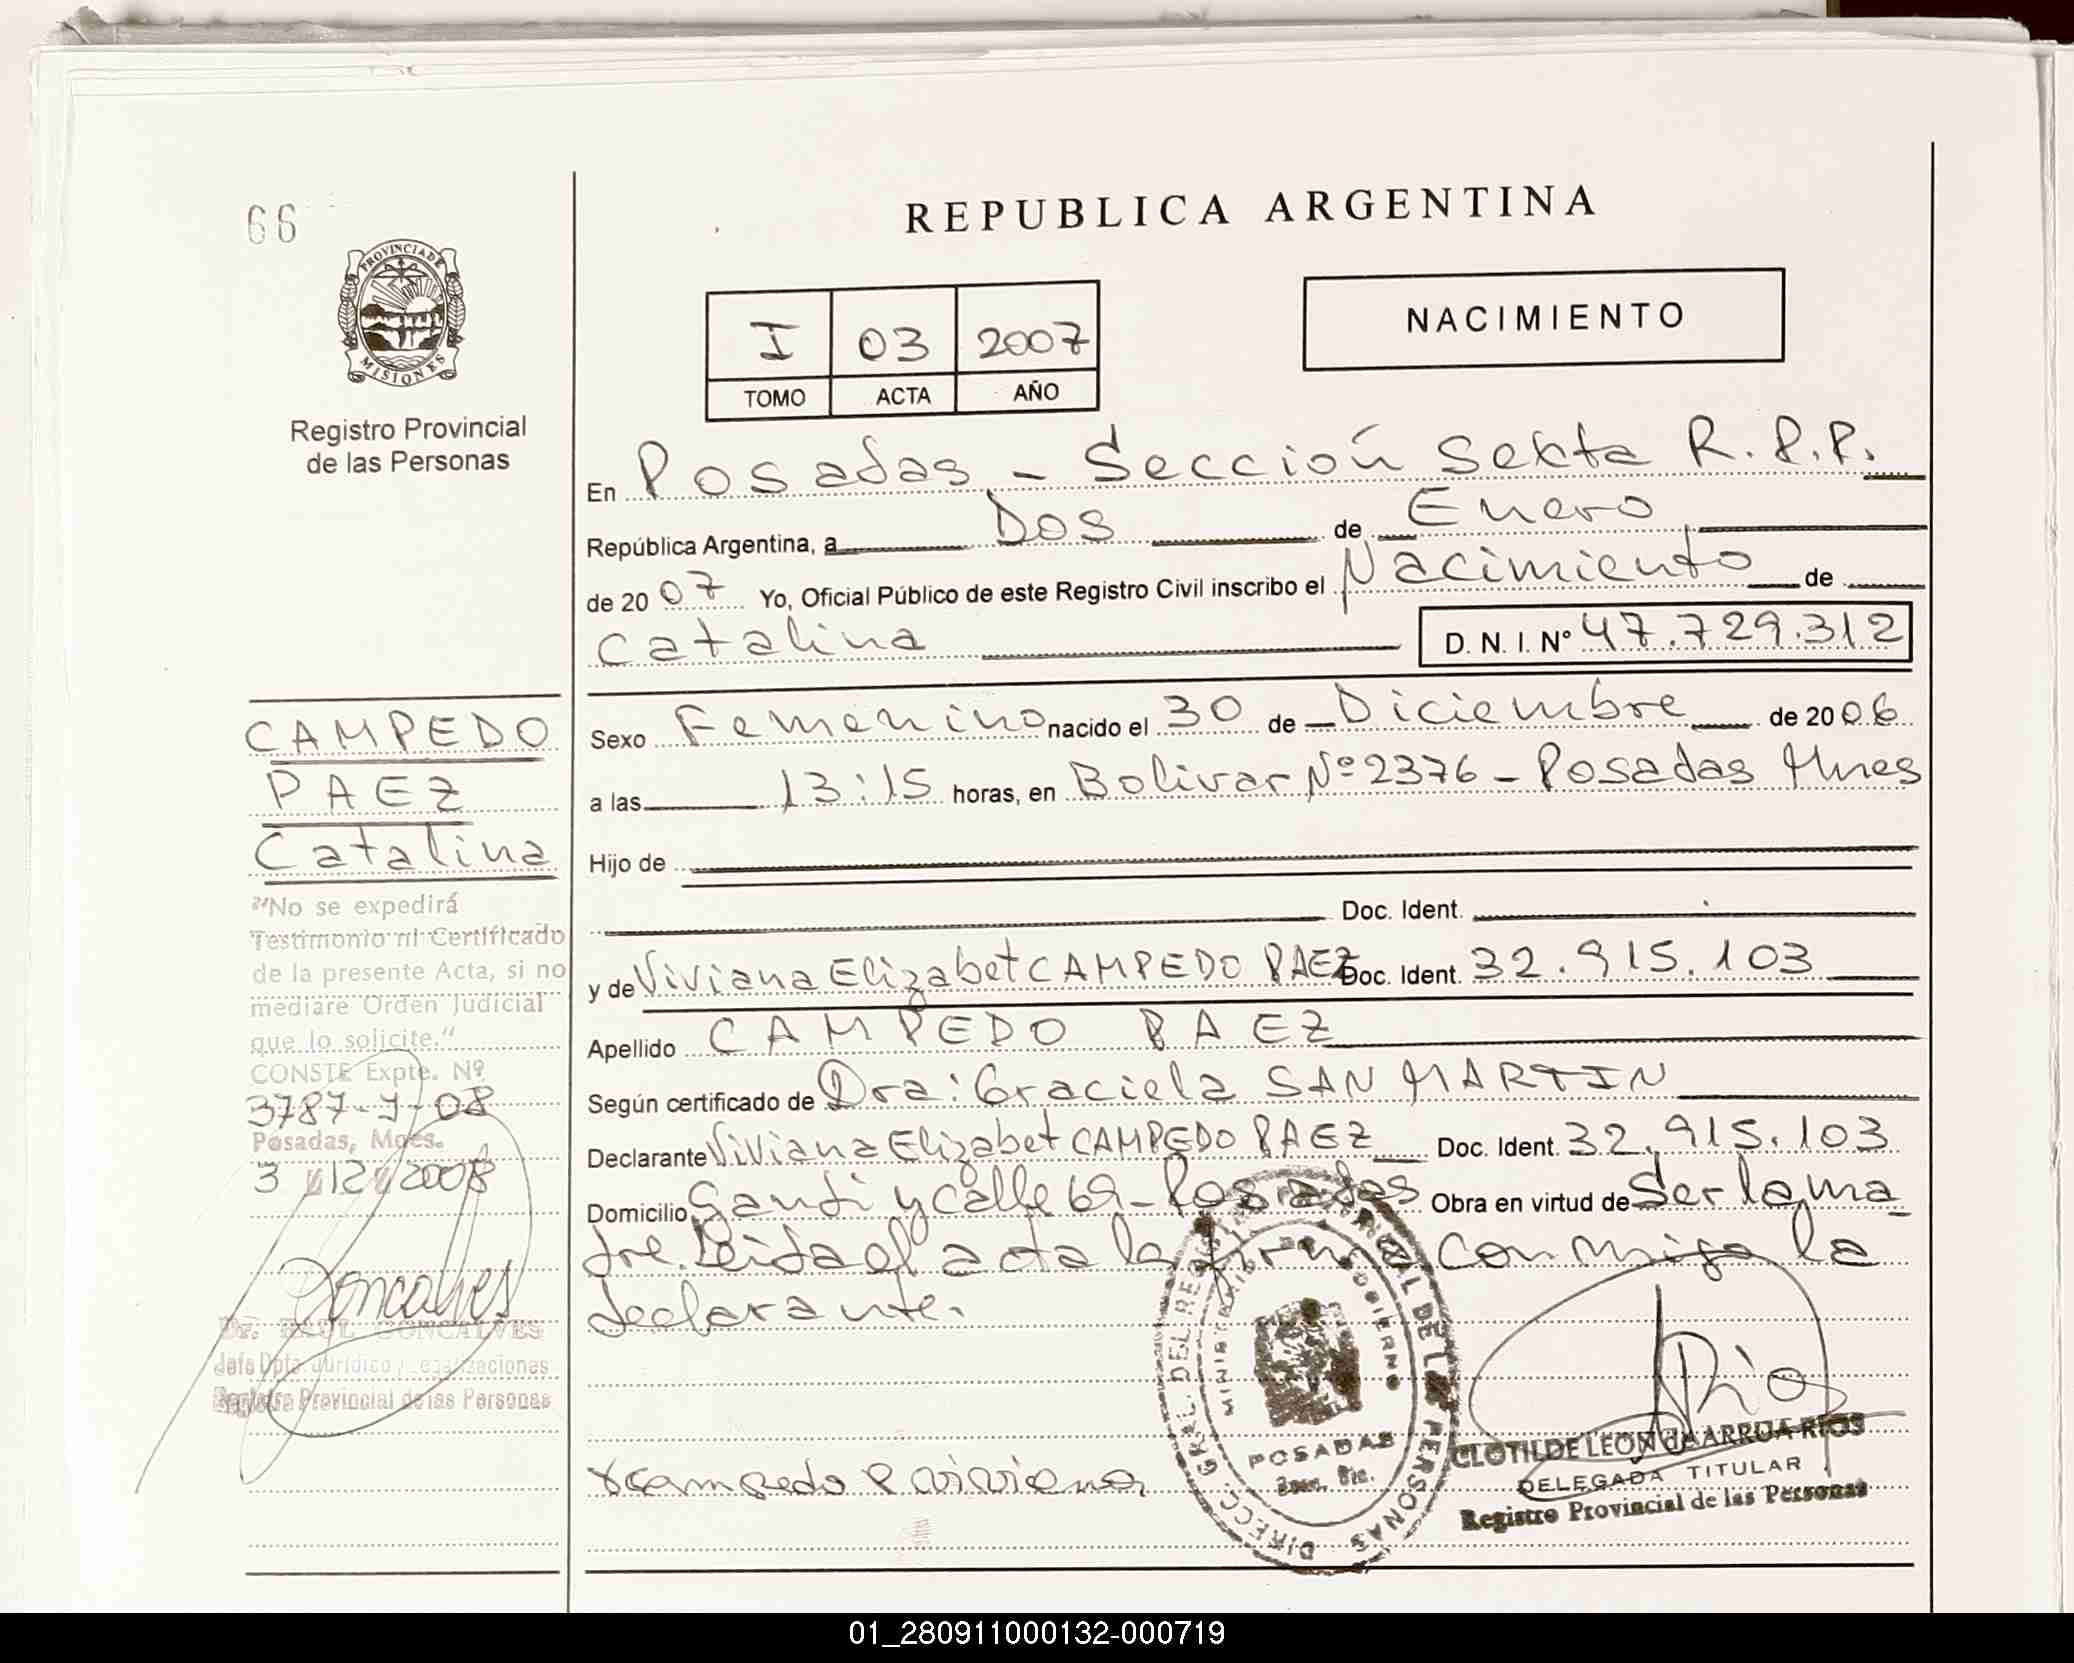 66
PROVINCIA DE
MISIONES
Registro Provincial
de las Personas
REPUBLICA ARGENTINA
I 03 2007
TOMO ACTA AÑO
NACIMIENTO
En Posadas - Sección Sexta R.P.P.
República Argentina, a Dos de Enero
de 2007 Yo, Oficial Público de este Registro Civil inscribo el Nacimiento de
Catalina D. N. I. Nº 47.729.312
Sexo Femenino nacido el 30 de Diciembre de 2006
a las 13:15 horas, en Bolivar Nº 2376 - Posadas Mnes
Hijo de
Doc. Ident.
y de Viviana Elizabet CAMPEDO PAEZ Doc. Ident. 32.915.103
Apellido CAMPEDO PAEZ
Según certificado de Dra: Graciela SAN MARTIN
Declarante Viviana Elizabet CAMPEDO PAEZ Doc. Ident. 32.915.103
Domicilio Gandi y calle 69 - Posadas Obra en virtud de Ser la ma
dre. Leida el acta la firma conmigo la
declarante.
Campedo P viviana
CAMPEDO
PAEZ
Catalina
"No se expedirá
Testimonio ni Certificado
de la presente Acta, si no
mediare Orden Judicial
que lo solicite."
CONSTE Expte. Nº
3787-J-08
Posadas, Mnes.
3 12 2008
Goncalves
Dr. RAUL GONCALVES
Jefe Dpto. Jurídico y Legalizaciones
Registro Provincial de las Personas
DIRECC. GRAL. DEL REGISTRO PROVINCIAL DE LAS PERSONAS
MINISTERIO DE GOBIERNO
POSADAS
Rios
CLOTILDE LEON de ARRUA RIOS
DELEGADA TITULAR
Registro Provincial de las Personas
01_280911000132-000719